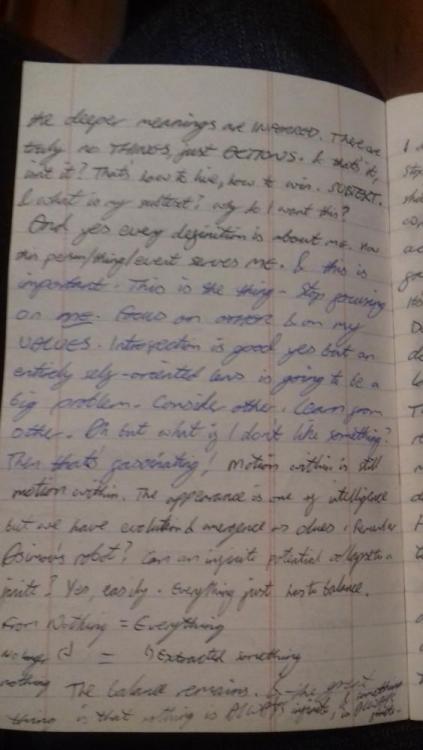 the deeper meanings are INFERRED. There are
truly no THINGS, just ACTIONS. & that's it,
isn't it? That's how to live, how to win. SUBTEXT.
& what is my subtext? why do I want this?
And yes every definition is about me. How
this person/thing/event serves ME. & this is
important. This is the thing - Stop focusing
on me. Focus on OTHER & on my
VALUES. Introspection is good yes but an
entirely self-oriented lens is going to be a
big problem. Consider other. Learn from
other. Oh but what if I don't like something?
Then that's fascinating! Motion within is still
motion within. The appearance is one of intelligence
but we have evolution & emergence as clues. Remember
Asimov's robot? Can an infinite potential collapse to a
finite? Yes, easily. Everything just has to balance.
From Nothing = Everything
No longer nothing = Extracted something
The balance remains.
thing is that nothing is ALWAYS infinite, & something is ALWAYS finite.